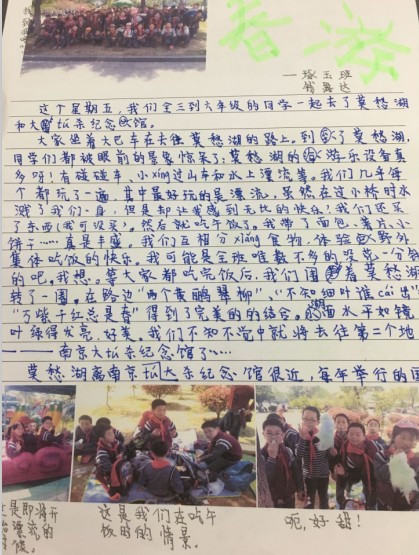 春游
——琢玉班
这个星期五，我们全三到六年级的同学一起去了莫愁湖
和大tú杀纪念馆。
大家坐着大巴车在去往莫愁湖的路上。到了莫愁湖，
同学们都被眼前的景象惊呆了，莫愁湖的游乐设备真
多呀！有碰碰车、小xíng过山车和水上漂流等。我们几乎每
个都玩了一遍，其中最好玩的是漂流，虽然在过小桥时水
溅了我们一身，但是却让我感到无比的快乐！我们还买
了东西（我可没买）。然后就吃午饭了。我带了面包、薯片、小
饼干……真是丰盛。我们互相分xiǎng食物，体验野外
集体吃饭的快乐。我可能是全班唯数不多的没当一分钱
的吧，我想。等大家都吃完饭后，我们围着莫愁湖
转了一圈。在路边“两个黄鹂翠柳”、“不知细叶谁cái出”
“万紫千红总是春”得到了完美的结合。湖水平如镜
叶绿得发亮，好美。我们不知不觉中就将去往第二个地
——南京大tú杀纪念馆了……
莫愁湖离南京tú大杀纪念馆很近，每年举行的国
这是即将开
始漂流的
这是我们在吃午
饭时的情景。
呃，好甜！